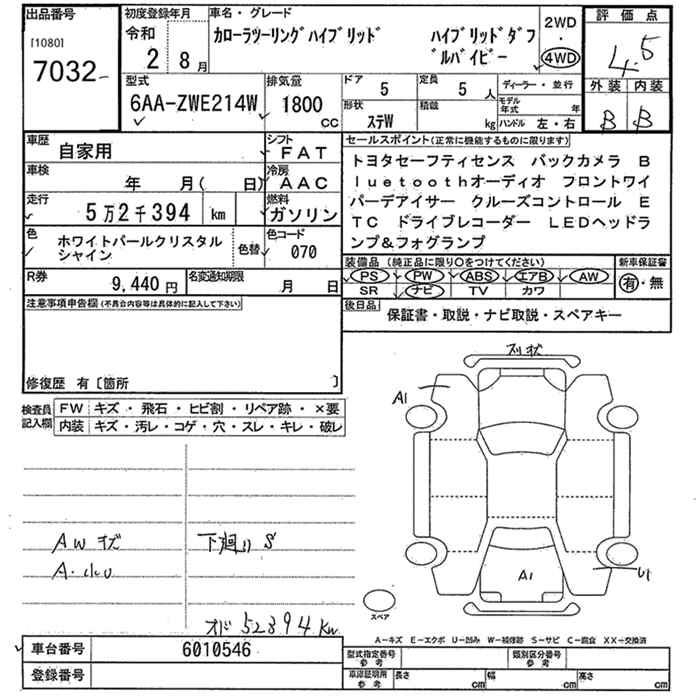 出品番号
[1080]
7032
初度登録年月
令和
2 8月
車名・グレード
カローラツーリングハイブリッド ハイブリッドダブ
ルバイビー
2WD
・
4WD
評価点
4.5
外装 内装
B B
型式
6AA-ZWE214W
排気量
1800
cc
ドア
5
定員
5 人
形状
ステW
積載
kg
ディーラー・並行
モデル年式 年
ハンドル 左・右
車歴
自家用
シフト
FAT
車検
年 月( 日)
冷房
AAC
走行
5万2千394 km
燃料
ガソリン
色
ホワイトパールクリスタル
シャイン
色替
色コード
070
R券
9,440円
名変通知期限
月 日
セールスポイント(正常に機能するものに限ります)
トヨタセーフティセンス バックカメラ B
luetoothオーディオ フロントワイ
パーデアイサー クルーズコントロール E
TC ドライブレコーダー LEDヘッドラ
ンプ&フォグランプ
装備品(純正品に限り○をつけてください)
PS PW ABS エアB AW
SR ナビ TV カワ
新車保証書
有・無
後日品
保証書・取説・ナビ取説・スペアキー
注意事項申告欄(不具合内容等は具体的に記入して下さい)
修復歴 有〔箇所 〕
検査員
記入欄
FW キズ・飛石・ヒビ割・リペア跡・×要
内装 キズ・汚レ・コゲ・穴・スレ・キレ・破レ
スリキズ
A1
AWキズ
下廻りS
A1
U1
スペア
オド52394Km
A-キズ E-エクボ U-凹み W-補修跡 S-サビ C-腐食 XX-交換済
車台番号
6010546
登録番号
型式指定番号
参考
類別区分番号
参考
車庫証明用
参考
長さ cm
幅 cm
高さ cm